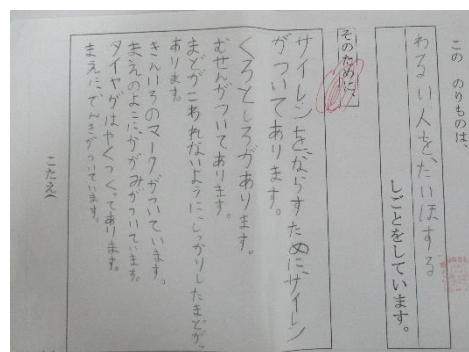 この のりものは、
わるい人を、たいほする
しごとをしています。
そのために、
サイレンを、ならすために、サイレン
がついてあります。
くろとしろがあります。
むせんがついてあります。
まどがこわれないように、しっかりしたまどが、
あります。
きんいろのマークがついています。
まえのよこに、かがみがついています。
タイヤがはやくつくってあります。
まえに、でんきがついています。
こたえ(